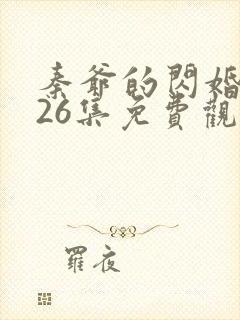 秦爺的閃婚
26集免費觀
羅夜